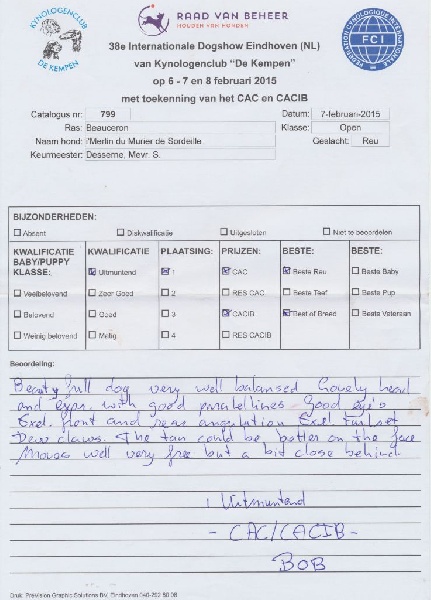 KYNOLOGENCLUB
DE KEMPEN
RAAD VAN BEHEER
HOUDEN VAN HONDEN
FEDERATION CYNOLOGIQUE INTERNATIONALE
FCI
38e Internationale Dogshow Eindhoven (NL)
van Kynologenclub "De Kempen"
op 6 - 7 en 8 februari 2015
met toekenning van het CAC en CACIB
Catalogus nr: 799 Datum: 7-februari-2015
Ras: Beauceron Klasse: Open
Naam hond: l'Merlin du Murier de Sordeille Geslacht: Reu
Keurmeester: Desserne, Mevr. S.
BIJZONDERHEDEN:
Absent Diskwalificatie Uitgesloten Niet te beoordelen
KWALIFICATIE BABY/PUPPY KLASSE: KWALIFICATIE PLAATSING: PRIJZEN: BESTE: BESTE:
Uitmuntend 1 CAC Beste Reu Beste Baby
Veelbelovend Zeer Goed 2 RES CAC Beste Teef Beste Pup
Belovend Goed 3 CACIB Best of Breed Beste Veteraan
Weinig belovend Matig 4 RES CACIB
Beoordeling:
Beautyfull dog very well balansed Lovely head
and expr. with good paralellines Good eye's
Exel. front and rear angulation Exel tailset
Dew claws. The tan could be better on the face
Moves well very free but a bit close behind.
1 Uitmuntend
- CAC/CACIB -
BOB
Druk: PreVision Graphic Solutions BV, Eindhoven 040-292 60 08